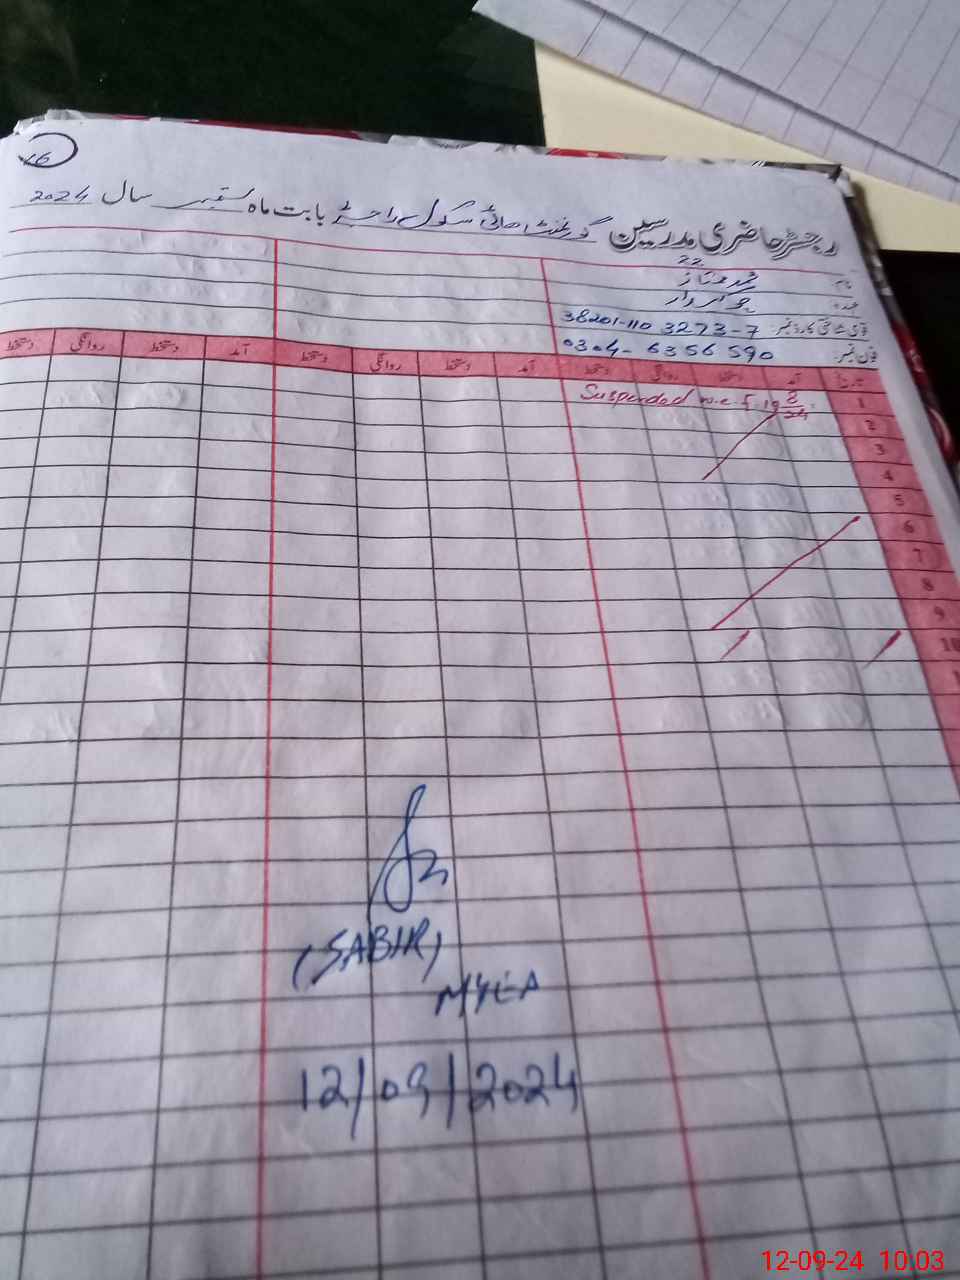 16
رجسٹر حاضری مدرسین گورنمنٹ ہائی سکول بابت ماہ ستمبر سال 2024
22
نام محمد ممتاز
عہدہ چوکیدار
قومی شناختی کارڈ نمبر: 38201-110 3273-7
فون نمبر: 0304- 6356 590
تاریخ آمد دستخط روانگی دستخط آمد دستخط روانگی دستخط آمد دستخط روانگی دستخط
1 Suspended w.e.f. 19 8/24
2
3
4
5
6
7
8
9
10
(SABIR)
MYEA
12/09/2024
12-09-24 10:03